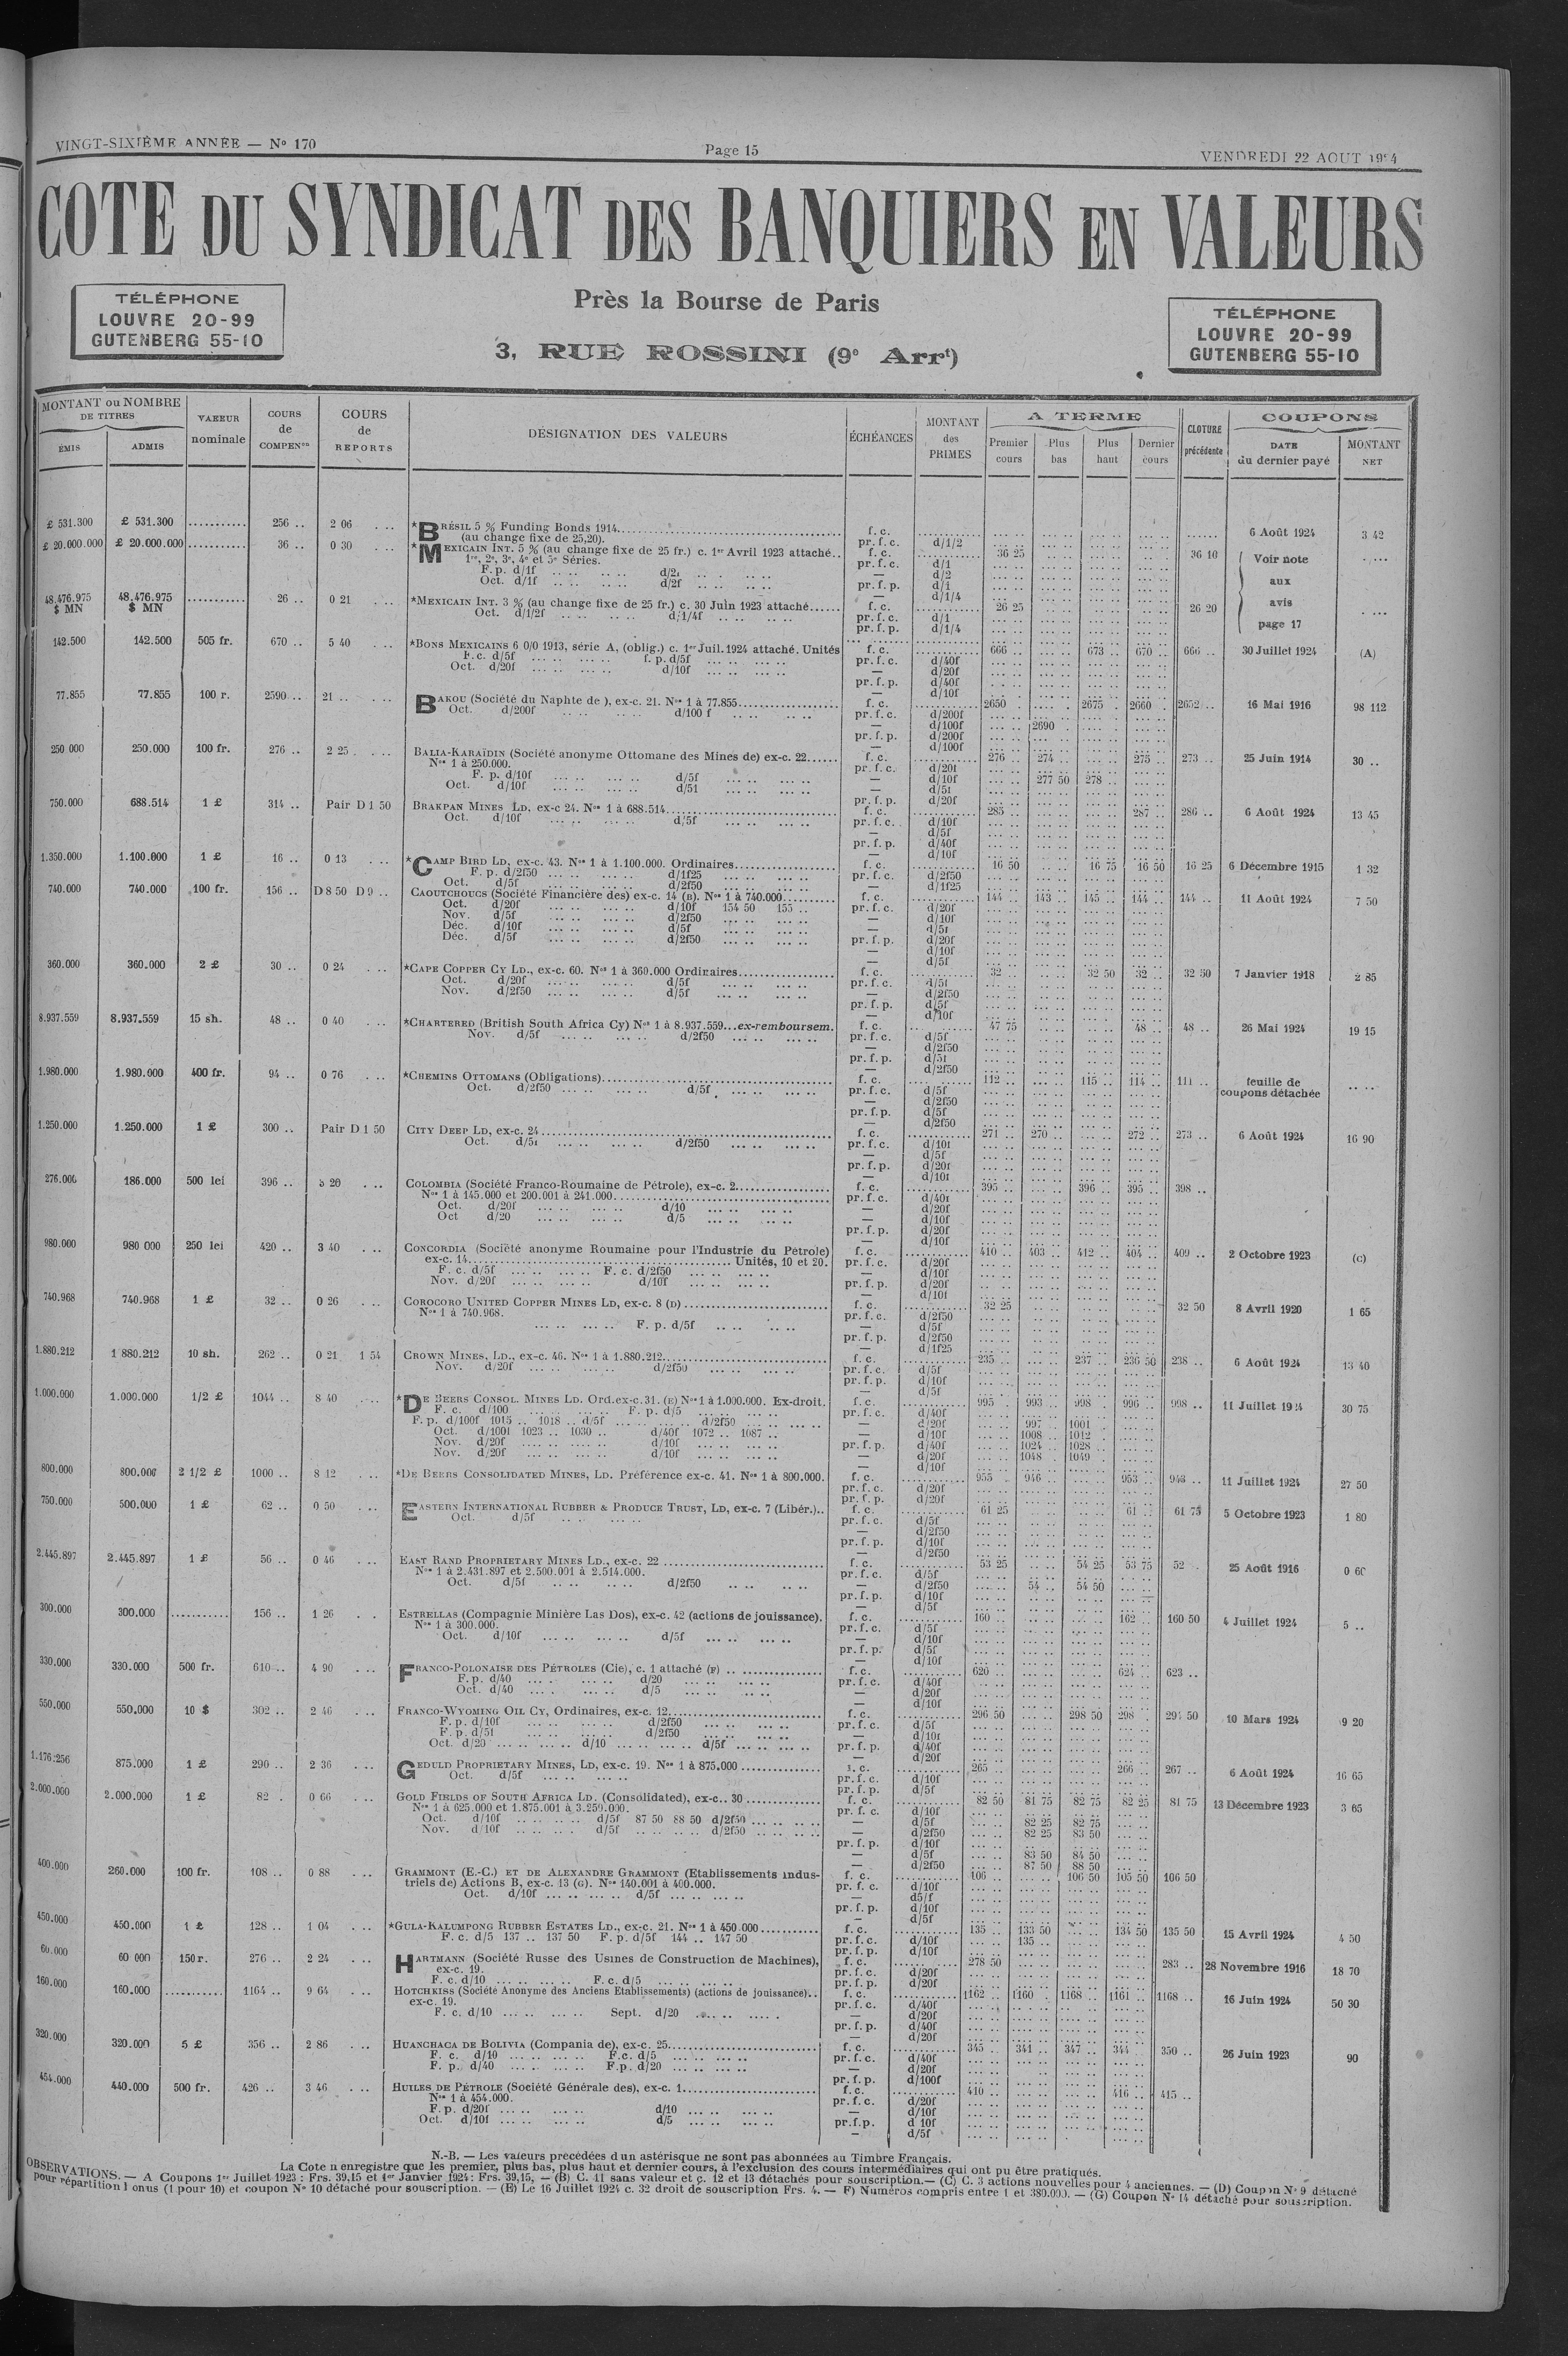 VINGT-SIXIÈME ANNÉE — No 170
Page 15
VENDREDI 22 AOUT
COTE DU SYNDICAT DES BANQUIERS EN VALEURS
TÉLÉPHONE
LOUVRE 20-99
GUTENBERG 55-10
Près la Bourse de Paris
3, RUE ROSSINI (9e Arrt)
TÉLÉPHONE
LOUVRE 20-99
GUTENBERG 55-10
MONTANT ou NOMBRE DE TITRES
ÉMIS
ADMIS
VALEUR nominale
COURS de COMPENon
COURS de REPORTS
DÉSIGNATION DES VALEURS
ÉCHÉANCES
MONTANT des PRIMES
A TERME
Premier cours
Plus bas
Plus haut
Dernier cours
CLOTURE précédente
COUPONS
DATE du dernier payé
MONTANT NET
£ 531.300 £ 531.300 ........... 256 .. 2 06 *BRÉSIL 5 % Funding Bonds 1914 f. c. 6 Août 1924 3 42
(au change fixe de 25,20). pr. f. c. d/1/2
£ 20.000.000 £ 20.000.000 ........... 36 .. 0 30 *MEXICAIN INT. 5 % (au change fixe de 25 fr.) c. 1er Avril 1923 attaché.. f. c. 36 25 36 10 Voir note aux avis page 17
1re, 2e, 3e, 4e et 5e Séries. pr. f. c. d/1
48.476.975 $ MN 48.476.975 $ MN ........... 26 .. 0 21 *MEXICAIN INT. 3 % (au change fixe de 25 fr.) c. 30 Juin 1923 attaché...... f. c. 26 25 26 20
Oct. d/1/2f d/1/4f pr. f. c. d/1
pr. f. p. d/1/4
142.500 142.500 505 fr. 670 .. 5 40 *BONS MEXICAINS 6 0/0 1913, série A, (oblig.) c. 1er Juil. 1924 attaché. Unités f. c. 666 .. 673 .. 670 .. 666 .. 30 Juillet 1924 (A)
F. c. d/5f f. p. d/5f pr. f. c. d/40f
Oct. d/20f d/10f d/20f
77.855 77.855 100 r. 2590 .. 21 .. BAKOU (Société du Naphte de), ex-c. 21. Nos 1 à 77.855 f. c. 2650 . 2675 . 2660 . 2652 .. 16 Mai 1916 98 112
Oct. d/200f d/100 f pr. f. c. d/200f
d/100f 2690
250 000 250.000 100 fr. 276 .. 2 25 BALIA-KARAÏDIN (Société anonyme Ottomane des Mines de) ex-c. 22 f. c. 276 .. 274 .. 275 .. 273 .. 25 Juin 1914 30 ..
Nos 1 à 250.000. pr. f. c.
F. p. d/10f d/5f — d/10f 277 50 278 ..
750.000 688.514 1 £ 314 .. Pair D 1 50 BRAKPAN MINES LD, ex-c 24. Nos 1 à 688.514 f. c. 285 .. 287 .. 286 .. 6 Août 1924 13 45
Oct. d/10f d/5f pr. f. c. d/10f
1.350.000 1.100.000 1 £ 16 .. 0 13 *CAMP BIRD LD, ex-c. 43. Nos 1 à 1.100.000. Ordinaires f. c. 16 50 16 75 16 50 16 25 6 Décembre 1915 1 32
F. p. d/2f50 d/1f25 pr. f. c. d/2f50
Oct. d/5f d/2f50 — d/1f25
740.000 740.000 100 fr. 156 .. D 8 50 D 9 .. CAOUTCHOUCS (Société Financière des) ex-c. 14 (B). Nos 1 à 740.000 f. c. 144 .. 143 .. 145 .. 144 .. 144 .. 11 Août 1924 7 50
Oct. d/20f d/10f 154 50 155 .. pr. f. c. d/20f
Nov. d/5f d/2f50 — d/10f
Déc. d/10f d/5f
Déc. d/5f d/2f50 pr. f. p. d/20f
360.000 360.000 2 £ 30 .. 0 24 *CAPE COPPER CY LD., ex-c. 60. Nos 1 à 360.000 Ordinaires f. c. 32 .. 32 50 32 .. 32 50 7 Janvier 1918 2 85
Oct. d/20f d/5f pr. f. c.
Nov. d/2f50 d/5f — d/2f50
8.937.559 8.937.559 15 sh. 48 .. 0 40 *CHARTERED (British South Africa Cy) Nos 1 à 8.937.559...ex-remboursem. f. c. 47 75 48 .. 48 .. 26 Mai 1924 19 15
Nov. d/5f d/2f50 pr. f. c. d/5f
1.980.000 1.980.000 400 fr. 94 .. 0 76 *CHEMINS OTTOMANS (Obligations) f. c. 112 .. 115 .. 114 .. 111 .. feuille de coupons détachée
Oct. d/2f50 d/5f pr. f. c. d/5f
1.250.000 1.250.000 1 £ 300 .. Pair D 1 50 CITY DEEP LD, ex-c. 24 f. c. 271 .. 270 .. 272 .. 273 .. 6 Août 1924 16 90
Oct. d/2f50 pr. f. c.
276.000 186.000 500 lei 396 .. COLOMBIA (Société Franco-Roumaine de Pétrole), ex-c. 2 f. c. 395 .. 396 .. 395 .. 398 ..
Nos 1 à 145.000 et 200.001 à 241.000 pr. f. c.
Oct. d/20f d/10 — d/20f
Oct d/20 d/5 — d/10f
980.000 980 000 250 lei 420 .. 3 40 CONCORDIA (Société anonyme Roumaine pour l'Industrie du Pétrole) f. c. 410 .. 403 .. 412 .. 404 .. 409 .. 2 Octobre 1923 (c)
ex-c. 14 Unités, 10 et 20. pr. f. c. d/20f
F. c. d/5f F. c. d/2f50 — d/10f
Nov. d/20f d/10f pr. f. p. d/20f
740.968 740.968 1 £ 32 .. 0 26 COROCORO UNITED COPPER MINES LD, ex-c. 8 (D) f. c. 32 25 32 50 8 Avril 1920 1 65
Nos 1 à 740.968. pr. f. c. d/2f50
F. p. d/5f — d/5f
1.880.212 1 880.212 10 sh. 262 .. 0 21 1 54 CROWN MINES, LD., ex-c. 46. Nos 1 à 1.880.212 f. c. 235 .. 237 .. 236 50 238 .. 6 Août 1924 13 40
Nov. d/20f d/2f50 pr. f. c. d/5f
1.000.000 1.000.000 1/2 £ 1044 .. 8 40 *DE BEERS CONSOL. MINES LD. Ord. ex-c. 31. (E) Nos 1 à 1.000.000. Ex-droit. f. c. 995 . 993 .. 998 .. 996 .. 998 .. 11 Juillet 30 75
F. c. d/100 F. p. d/5 pr. f. c. d/40f
F. p. d/100f 1015 .. 1018 .. d/5f d/2f50 — d/20f 997 . 1001 .
Oct. 1023 .. 1030 .. d/40f 1072 .. 1087 .. — d/10f 1008 .. 1012 ..
Nov. d/20f d/10f pr. f. p. d/40f 1024 .. 1028 ..
Nov. d/20f d/10f — d/20f 1048 . 1049 ..
800.000 800.000 2 1/2 £ 1000 .. 8 12 *DE BEERS CONSOLIDATED MINES, LD. Préférence ex-c. 41. Nos 1 à 800.000. f. c. 955 946 .. 953 .. 11 Juillet 1924 27 50
750.000 500.000 1 £ 62 .. 0 50 EASTERN INTERNATIONAL RUBBER & PRODUCE TRUST, LD, ex-c. 7 (Libér.).. f. c. 61 25 61 .. 61 75 5 Octobre 1923 1 80
Oct. d/5f pr. f. c. d/5f
2.445.897 2.445.897 1 £ 56 .. 0 46 EAST RAND PROPRIETARY MINES LD., ex-c. 22 f. c. 53 25 54 25 53 75 52 . 25 Août 1916
Nos 1 à 2.431.897 et 2.500.001 à 2.514.000. pr. f. c. d/5f
Oct. d/5f d/2f50 — d/2f50 54 .. 54 50
300.000 300.000 ........... 156 .. 1 26 ESTRELLAS (Compagnie Minière Las Dos), ex-c. 42 (actions de jouissance). f. c. 160 .. 162 .. 160 50 4 Juillet 1924 5 ..
Nos 1 à 300.000. pr. f. c. d/5f
Oct. d/10f d/5f — d/10f
330.000 330.000 500 fr. 610 .. 4 90 FRANCO-POLONAISE DES PÉTROLES (Cie), c. 1 attaché (F) f. c. 620 .. 624 .. 623 ..
F. p. d/40 d/20 pr. f. c. d/40f
Oct. d/40 d/5 — d/20f
550.000 550.000 10 $ 302 .. 2 46 FRANCO-WYOMING OIL CY, Ordinaires, ex-c. 12 f. c. 296 50 298 50 298 . 10 Mars 1924 9 20
F. p. d/10f d/2f50 pr. f. c. d/5f
F. p. d/5f d/2f50
Oct. d/20 d/10 d/5f pr. f. p. d/40f
1.176.256 875.000 1 £ 290 .. 2 36 GEDULD PROPRIETARY MINES, LD, ex-c. 19. Nos 1 à 875.000 f. c. 265 .. 266 .. 267 .. 6 Août 1924 16 65
Oct. d/5f pr. f. c. d/10f
2.000.000 2.000.000 1 £ 82 . 0 66 GOLD FIELDS OF SOUTH AFRICA LD. (Consolidated), ex-c.. 30 f. c. 82 50 81 75 82 75 82 25 81 75 13 Décembre 1923 3 65
Nos 1 à 625.000 et 1.875.001 à 3.259.000. pr. f. c. d/10f
Oct. d/10f d/5f 87 50 88 50 d/2f50 — d/5f 82 25 82 75
Nov. d/10f d/5f d/2f50 — d/2f50 82 25 83 50
pr. f. p. d/10f
— d/5f 83 50 84 50
— d/2f50 87 50 88 50
400.000 260.000 100 fr. 108 .. 0 88 GRAMMONT (E.-C.) ET DE ALEXANDRE GRAMMONT (Etablissements indus- f. c. 106 .. 106 50 105 50 106 50
triels de) Actions B, ex-c. 13 (G). Nos 140.001 à 400.000. pr. f. c. d/10f
Oct. d/10f d/5f — d5/f
450.000 450.000 1 £ 128 .. 1 04 *GULA-KALUMPONG RUBBER ESTATES LD., ex-c. 21. Nos 1 à 450.000 f. c. 135 .. 133 50 134 50 135 50 15 Avril 1924 4 50
F. c. d/5 137 .. 137 50 F. p. d/5f 144 .. 147 50 pr. f. c. d/10f 135 ..
60.000 60 000 150 r. 276 .. 2 24 HARTMANN (Société Russe des Usines de Construction de Machines), f. c. 278 50 283 .. 28 Novembre 1916 18 70
ex-c. 19. pr. f. c. d/20f
F. c. d/10 F. c. d/5 pr. f. p. d/20f
160.000 160.000 ........... 1164 .. 9 64 HOTCHKISS (Société Anonyme des Anciens Etablissements) (actions de jouissance).. f. c. 1162 .. 1160 . 1168 .. 1161 .. 1168 .. 16 Juin 1924 50 30
ex-c. 19. pr. f. c. d/40f
F. c. d/10 Sept. d/20 — d/20f
320.000 320.000 5 £ 356 .. 2 86 HUANCHACA DE BOLIVIA (Compania de), ex-c. 25 f. c. 345 .. 341 .. 347 .. 344 .. 350 .. 26 Juin 1923 90
F. c. d/10 F.c. d/5 pr. f. c. d/40f
F. p. d/40 F.p. d/20 — d/20f
454.000 440.000 500 fr. 426 .. 3 46 HUILES DE PÉTROLE (Société Générale des), ex-c. 1 f. c. 410 .. 416 .. 415 ..
Nos 1 à 454.000. pr. f. c. d/20f
F. p. d/20f d/10 — d/10f
Oct. d/10f d/5 pr. f. p. d 10f
— d/5f
N.-B. — Les valeurs précédées d un astérisque ne sont pas abonnées au Timbre Français.
La Cote n enregistre que les premier, plus bas, plus haut et dernier cours, à l'exclusion des cours intermédiaires qui ont pu être pratiqués.
OBSERVATIONS. — A Coupons 1er Juillet 1923 : Frs. 39,15 et 1er Janvier 1924 : Frs. 39,15, — (B) C. 11 sans valeur et c. 12 et 13 détachés pour souscription. — (C) C. 3 actions nouvelles pour 4 anciennes. — (D) Coupon No 9 détaché
pour répartition onus (1 pour 10) et coupon No 10 détaché pour souscription. — (E) Le 16 Juillet 1924 c. 32 droit de souscription Frs. 4. — F) Numéros compris entre 1 et 380.000. — (G) Coupon No 14 détaché pour souscription.